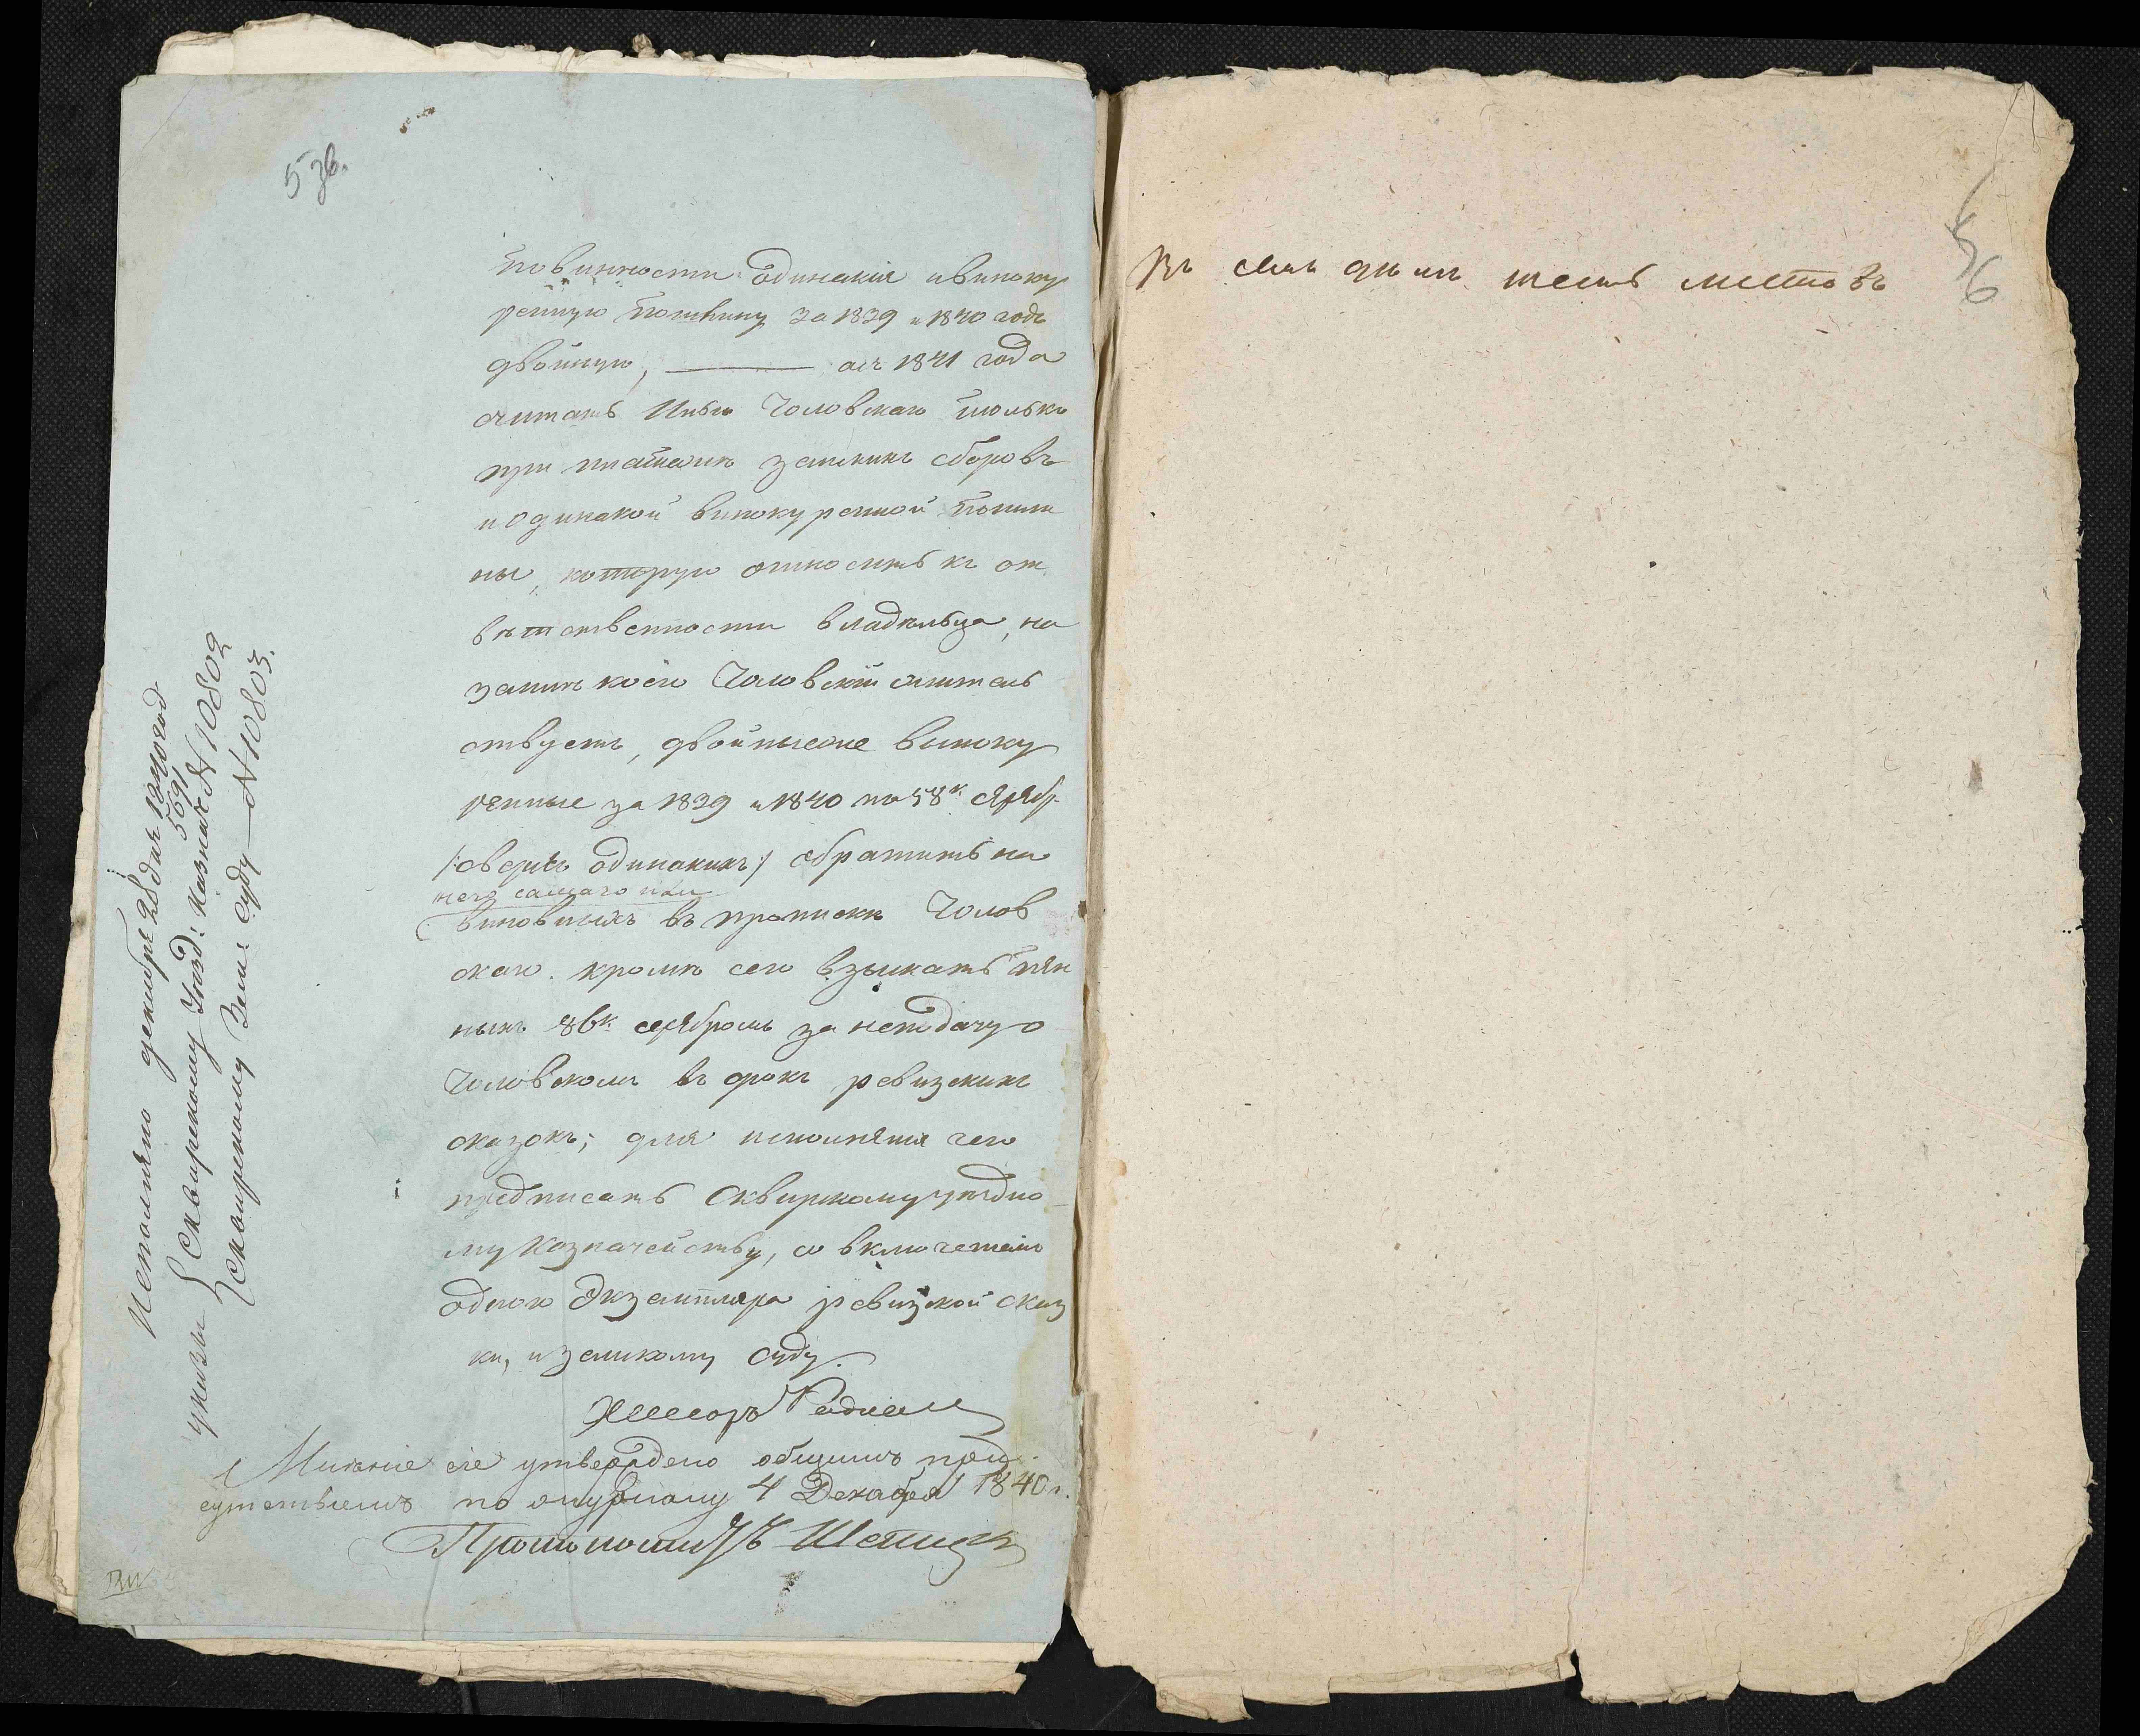 5 зв.
повинности одинакія и винокур
ренную пошлину за 1839 и 1840 годъ
двойную, ——— а съ 1841 года
считать Ильи Чоловскаго только
при платежѣ земскихъ сборовъ
и одинакой винокуренной пошли
ны, которую относить къ от
вѣтственности владѣльца, на
землѣ коего Чоловскій жительс
ствуетъ, двойные же виноку
ренные за 1839 и 1840 по 58к. серебр.
/:сверхъ одинакихъ:/ обратить на
него самаго или
виновныхъ въ пропискѣ Чолов
скаго. кромѣ сего взыскать пен
ныхъ 86к. серебромъ за неподачу
Чоловскимъ въ срокъ ревизскихъ
сказокъ; для исполненія чего
предписать Сквирскому уѣздно
му Казначейству, со включеніемъ
одного Экземпляра ревизской сказ
ки, и земскому суду.
Ассесоръ
Мнѣніе сіе утверждено общимъ при
сутствіемъ по журналу 4 Декабря 1840 г.
Протоколистъ
Исполнено декабря 28 дня 1840 год
5691
указы Сквирскому Уѣзд: Казнач № 10802
Сквирскому Зем: Суду — № 10803.
56
Въ семъ дѣлѣ шесть листовъ